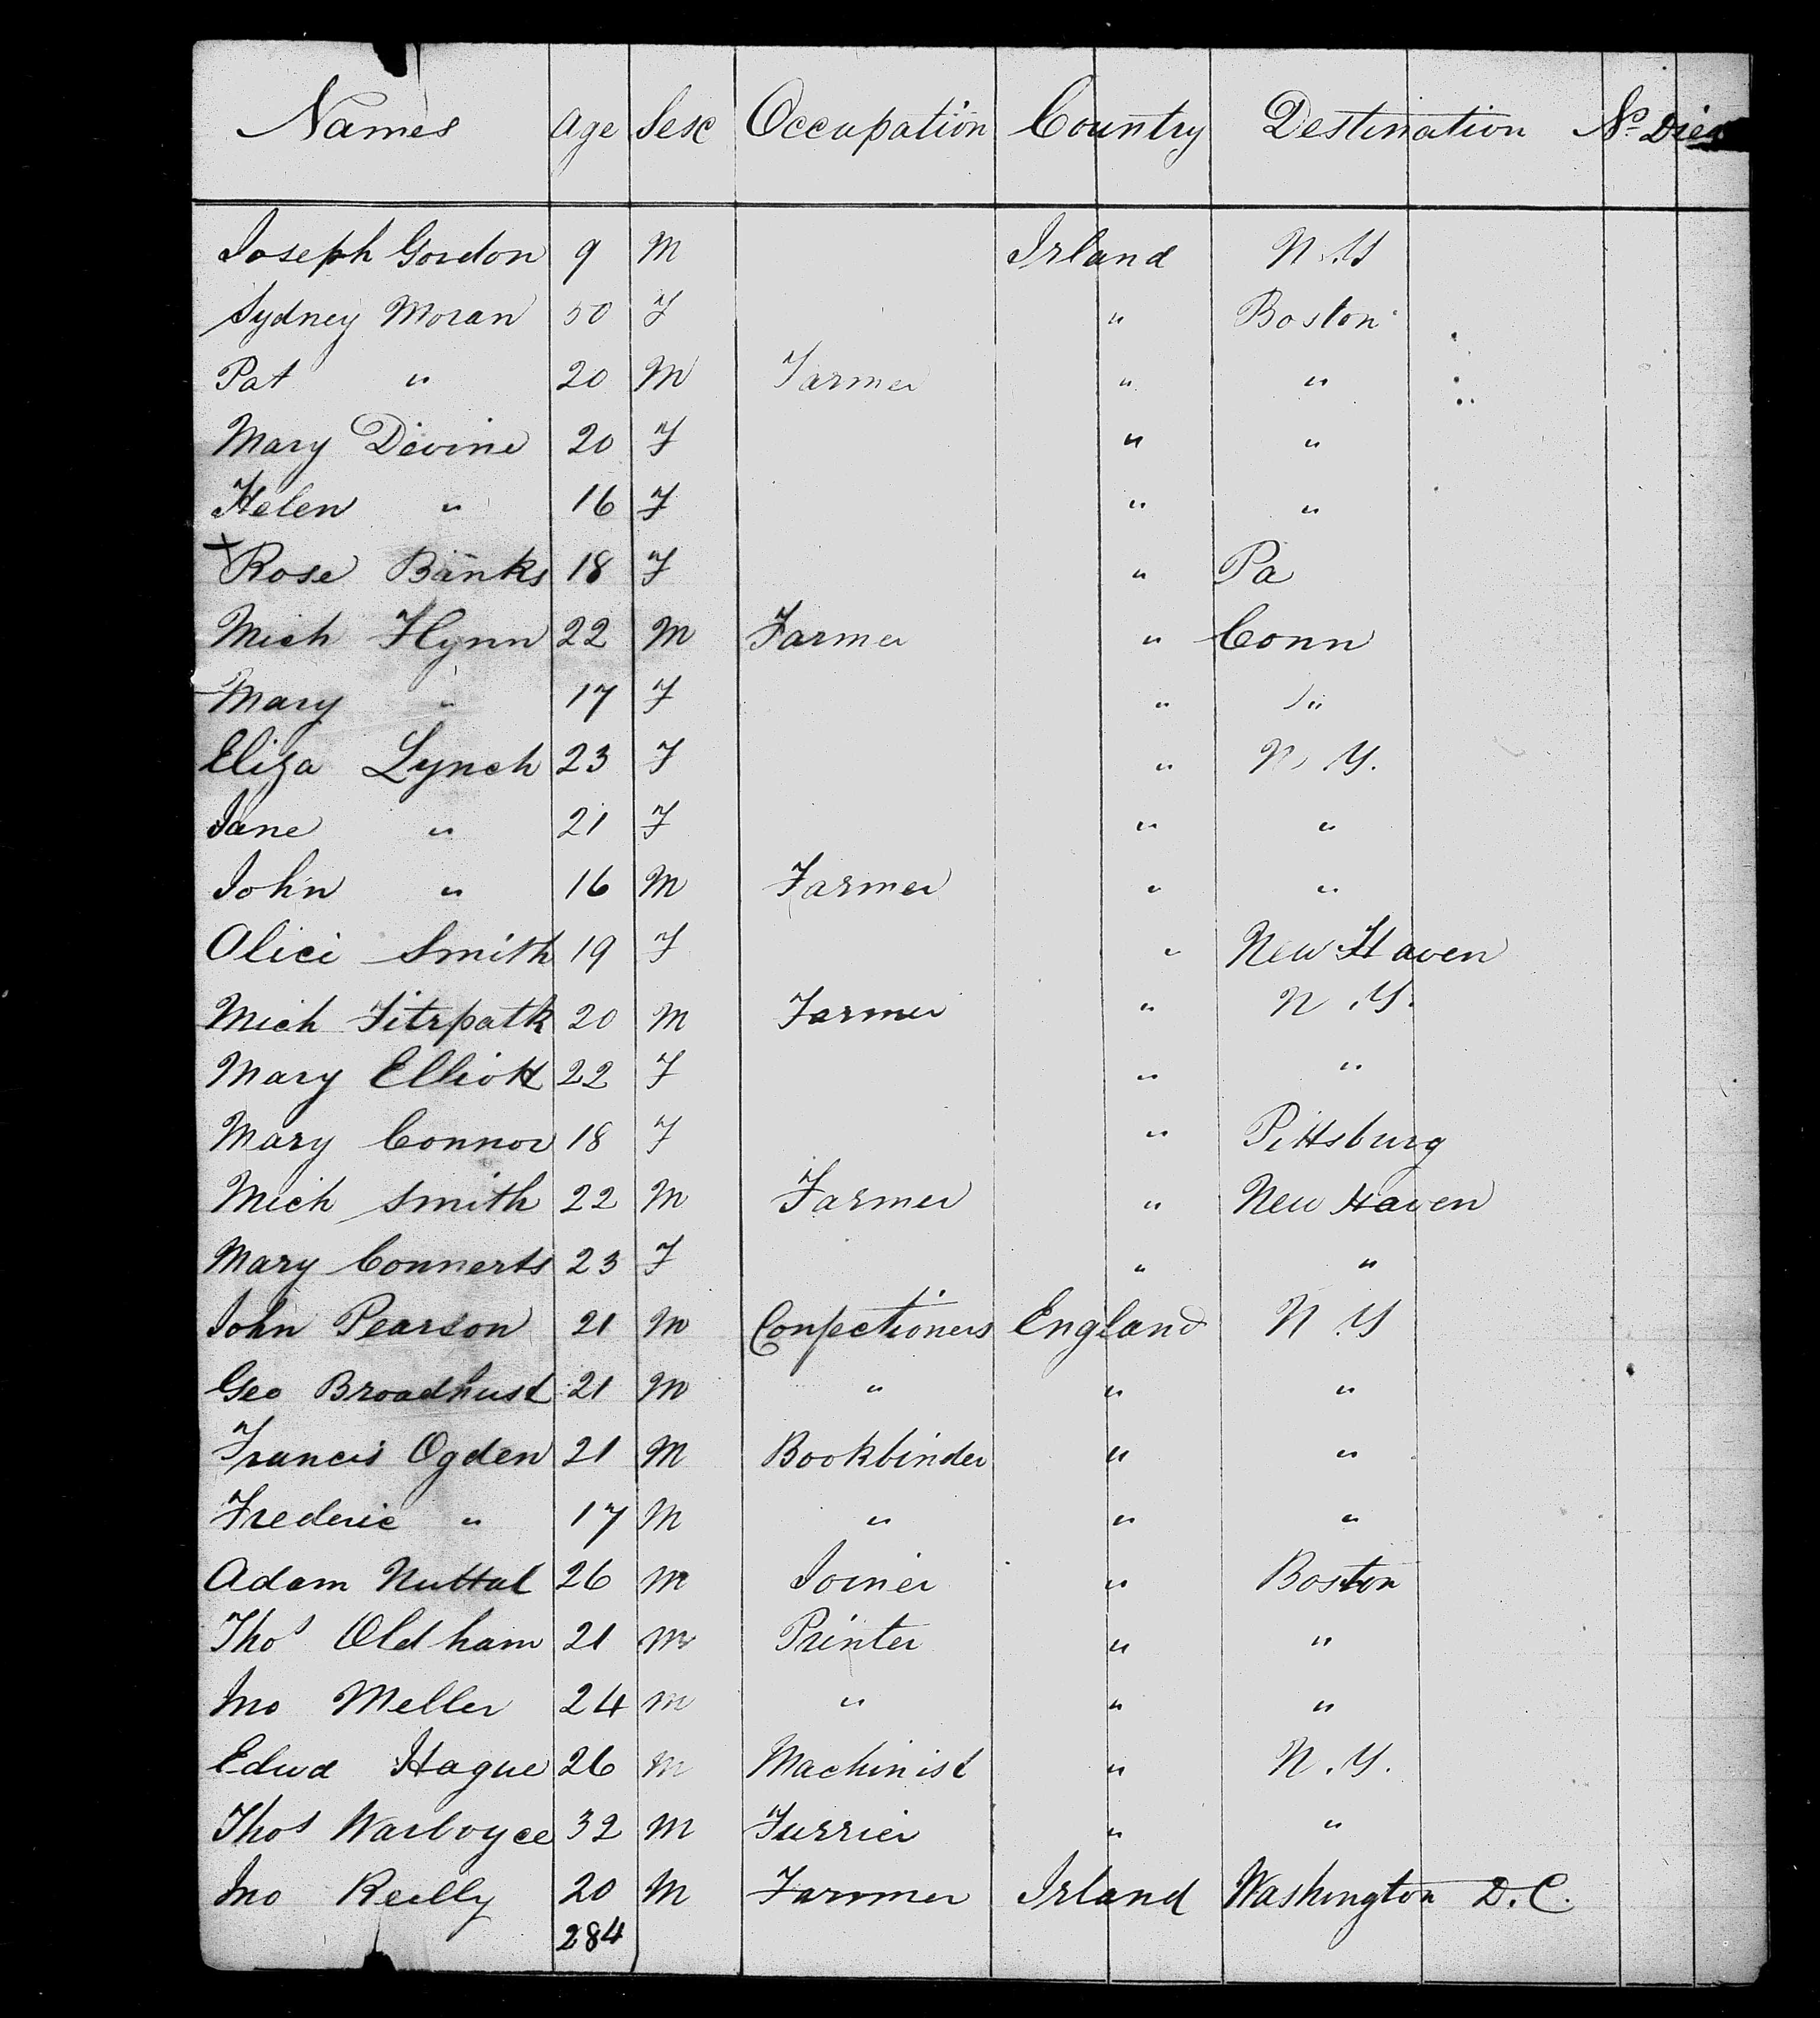 Names Age Sex Occupation Country Destination No Died
Joseph Gordon 9 M Irland N.Y
Sydney Moran 50 F " Boston
Pat " 20 M Farmer " "
Mary Devine 20 F " "
Helen " 16 F " "
+ Rose Banks 18 F " Pa
Mich Flynn 22 M Farmer " Conn
Mary " 17 F " "
Eliza Lynch 23 F " N.Y.
Jane " 21 F " "
John " 16 M Farmer " "
Alice Smith 19 F " New Haven
Mich Fitzpatk 20 M Farmer " N.Y.
Mary Elliott 22 F " "
Mary Connor 18 F " Pittsburg
Mich Smith 22 M Farmer " New Haven
Mary Connerts 23 F " "
John Pearson 21 M Confectioners England N.Y
Geo Broadhust 21 M " " "
Francis Ogden 21 M Bookbinder " "
Frederic " 17 M " " "
Adam Nuttal 26 M Joiner " Boston
Thos Oldham 21 M Printer " "
Jno Meller 24 M " " "
Edwd Hague 26 M Machinist " N.Y.
Thos Warboyce 32 M Furrier " "
Jno Reilly 20 M Farmer Irland Washington D.C.
284